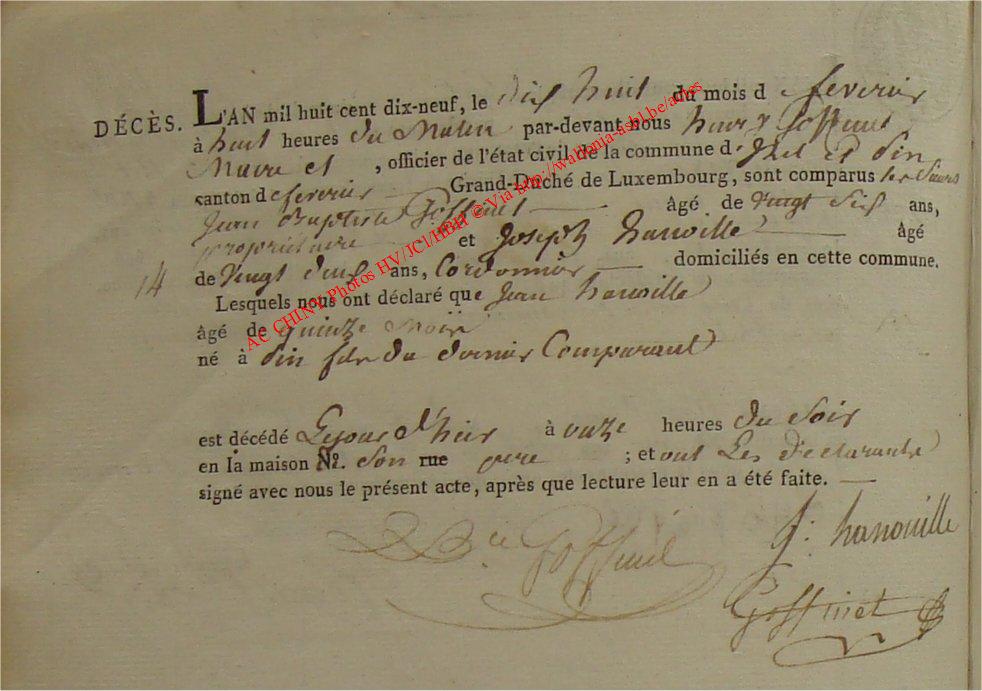 DÉCÈS. L'AN mil huit cent dix-neuf, le dix huit du mois d fevrier
à huit heures du Matin par-devant nous henry Goffinet
Maire et , officier de l'état civil de la commune d'Izel et pin
canton de Grand-Duché de Luxembourg, sont comparus les Sieurs
Jean Baptiste Goffinet âgé de Vingt Six ans,
propriétaire et Joseph hanoville âgé
14 de Vingt ans, Cordonnier domiciliés en cette commune.
Lesquels nous ont déclaré que Jean hanoville
âgé de quinze Mois
né à pin fils du dernier Comparant
est décédé Le jour d'hier à onze heures du Soir
en la maison N°. Son rue pere ; et ont Les declarants
signé avec nous le présent acte, après que lecture leur en a été faite.
J: hanouille
Goffinet
Goffinet
AC CHINY Photos HV/JC1/HBH © Via http://wallonia-asbl.be/actes